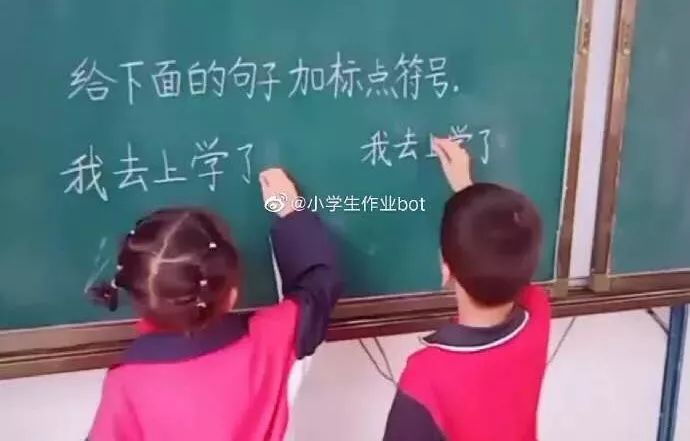 给下面的句子加标点符号.
我去上学了
我去上学了
@小学生作业bot